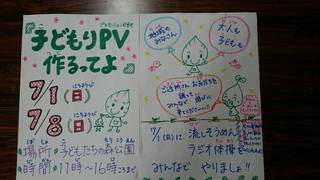 プロモーションビデオ
子どもりPV
作るってよ
7/1(日)
にちようび
7/8(日)
にちようび
ばしょ
場所 子どもたちの森公園
じかん
時間 11時~16時ごろまで
地域の
みなさん
大人も
子どもも
ご近所さん、お友だちを
誘って
みんなで 遊びに
来てくださーい!!
7/1(日)に 流しそうめん
ラジオ体操
みんなで やりましょ!!